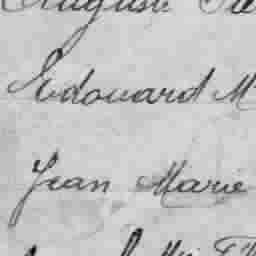 Auguste
Edouard M
Jean Marie